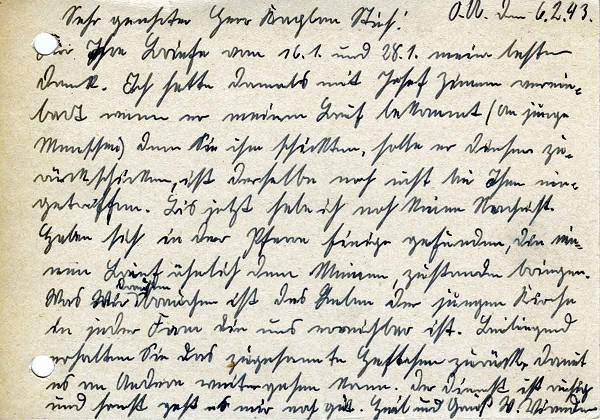 Sehr geehrter Herr Kaplan Stich! O.U. den 6.2.43.
Für Ihre Briefe vom 16.1. und 28.1. meinen besten
Dank. Ich hatte damals mit Josef Zimmer verein-
bart wenn er meinen Brief bekommt (An junge
Menschen) den Sie ihm schickten, solle er diesen zu-
rückschicken, ist derselbe noch nicht bei Ihnen ein-
getroffen. Bis jetzt habe ich noch keine Nachricht.
Haben sich in der Pfarre einige gefunden, die
einen Brief ähnlich dem Meinen zustande bringen.
Was Wir draußen brauchen ist das Leben der jungen Kirche
in jeder Form die uns erreichbar ist. Beiliegend
erhalten Sie das zugesannte Heftchen zurück, damit
es an Andere weitergehen kann. Der Dienst ist
und sonst geht es mir noch gut. Heil und Gruß